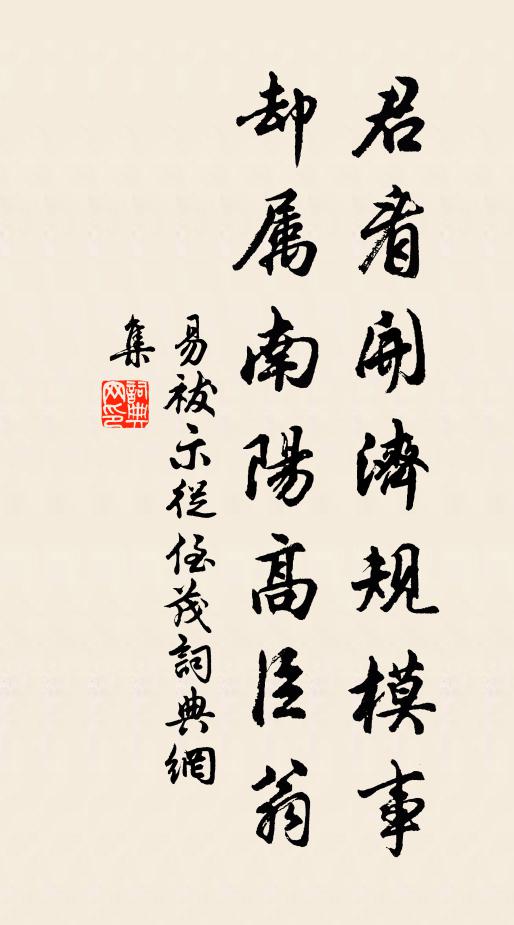 君看開濟規模事
却属南陽高臣翁
易祓示從侄茂詞典網
集
詞典
网印